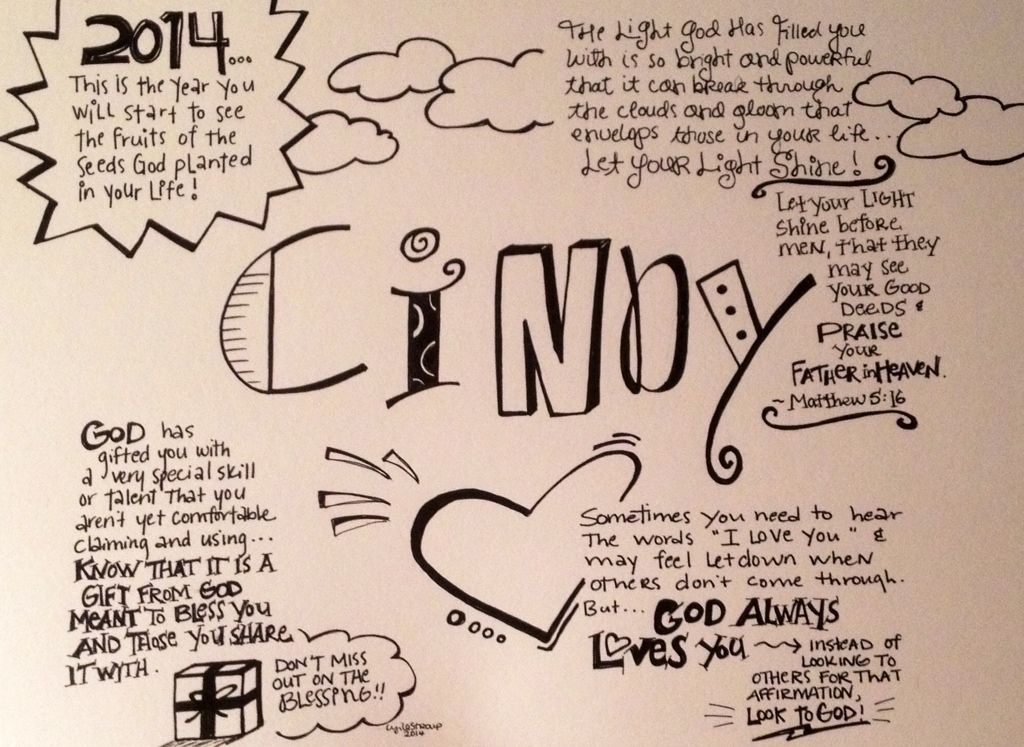 2014...
This is the year you
will start to see
the fruits of the
seeds God planted
in your life!
The Light God Has filled you
with is so bright and powerful
that it can break through
the clouds and gloom that
envelops those in your life...
Let Your Light Shine!
Let your LIGHT
shine before
men, that they
may see
your Good
DEEDS &
PRAISE
your
FATHER in HEAVEN.
~Matthew 5:16
CiNDY
GOD has
gifted you with
a very special skill
or talent that you
aren't yet comfortable
claiming and using...
KNOW THAT IT IS A
GIFT FROM GOD
MEANT TO BLESS YOU
AND THOSE YOU SHARE
IT WITH.
DON'T MISS
OUT ON THE
BLESSING!!
Sometimes you need to hear
the words "I Love you" &
may feel let down when
others don't come through.
But... GOD ALWAYS
Loves you → instead of
LOOKING TO
OTHERS FOR THAT
AFFIRMATION,
LOOK TO GOD!
2014